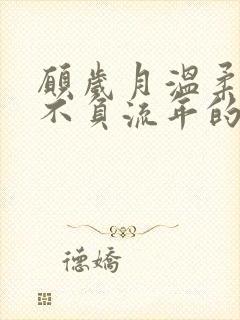 願歲月溫柔
不負流年的
德嬌